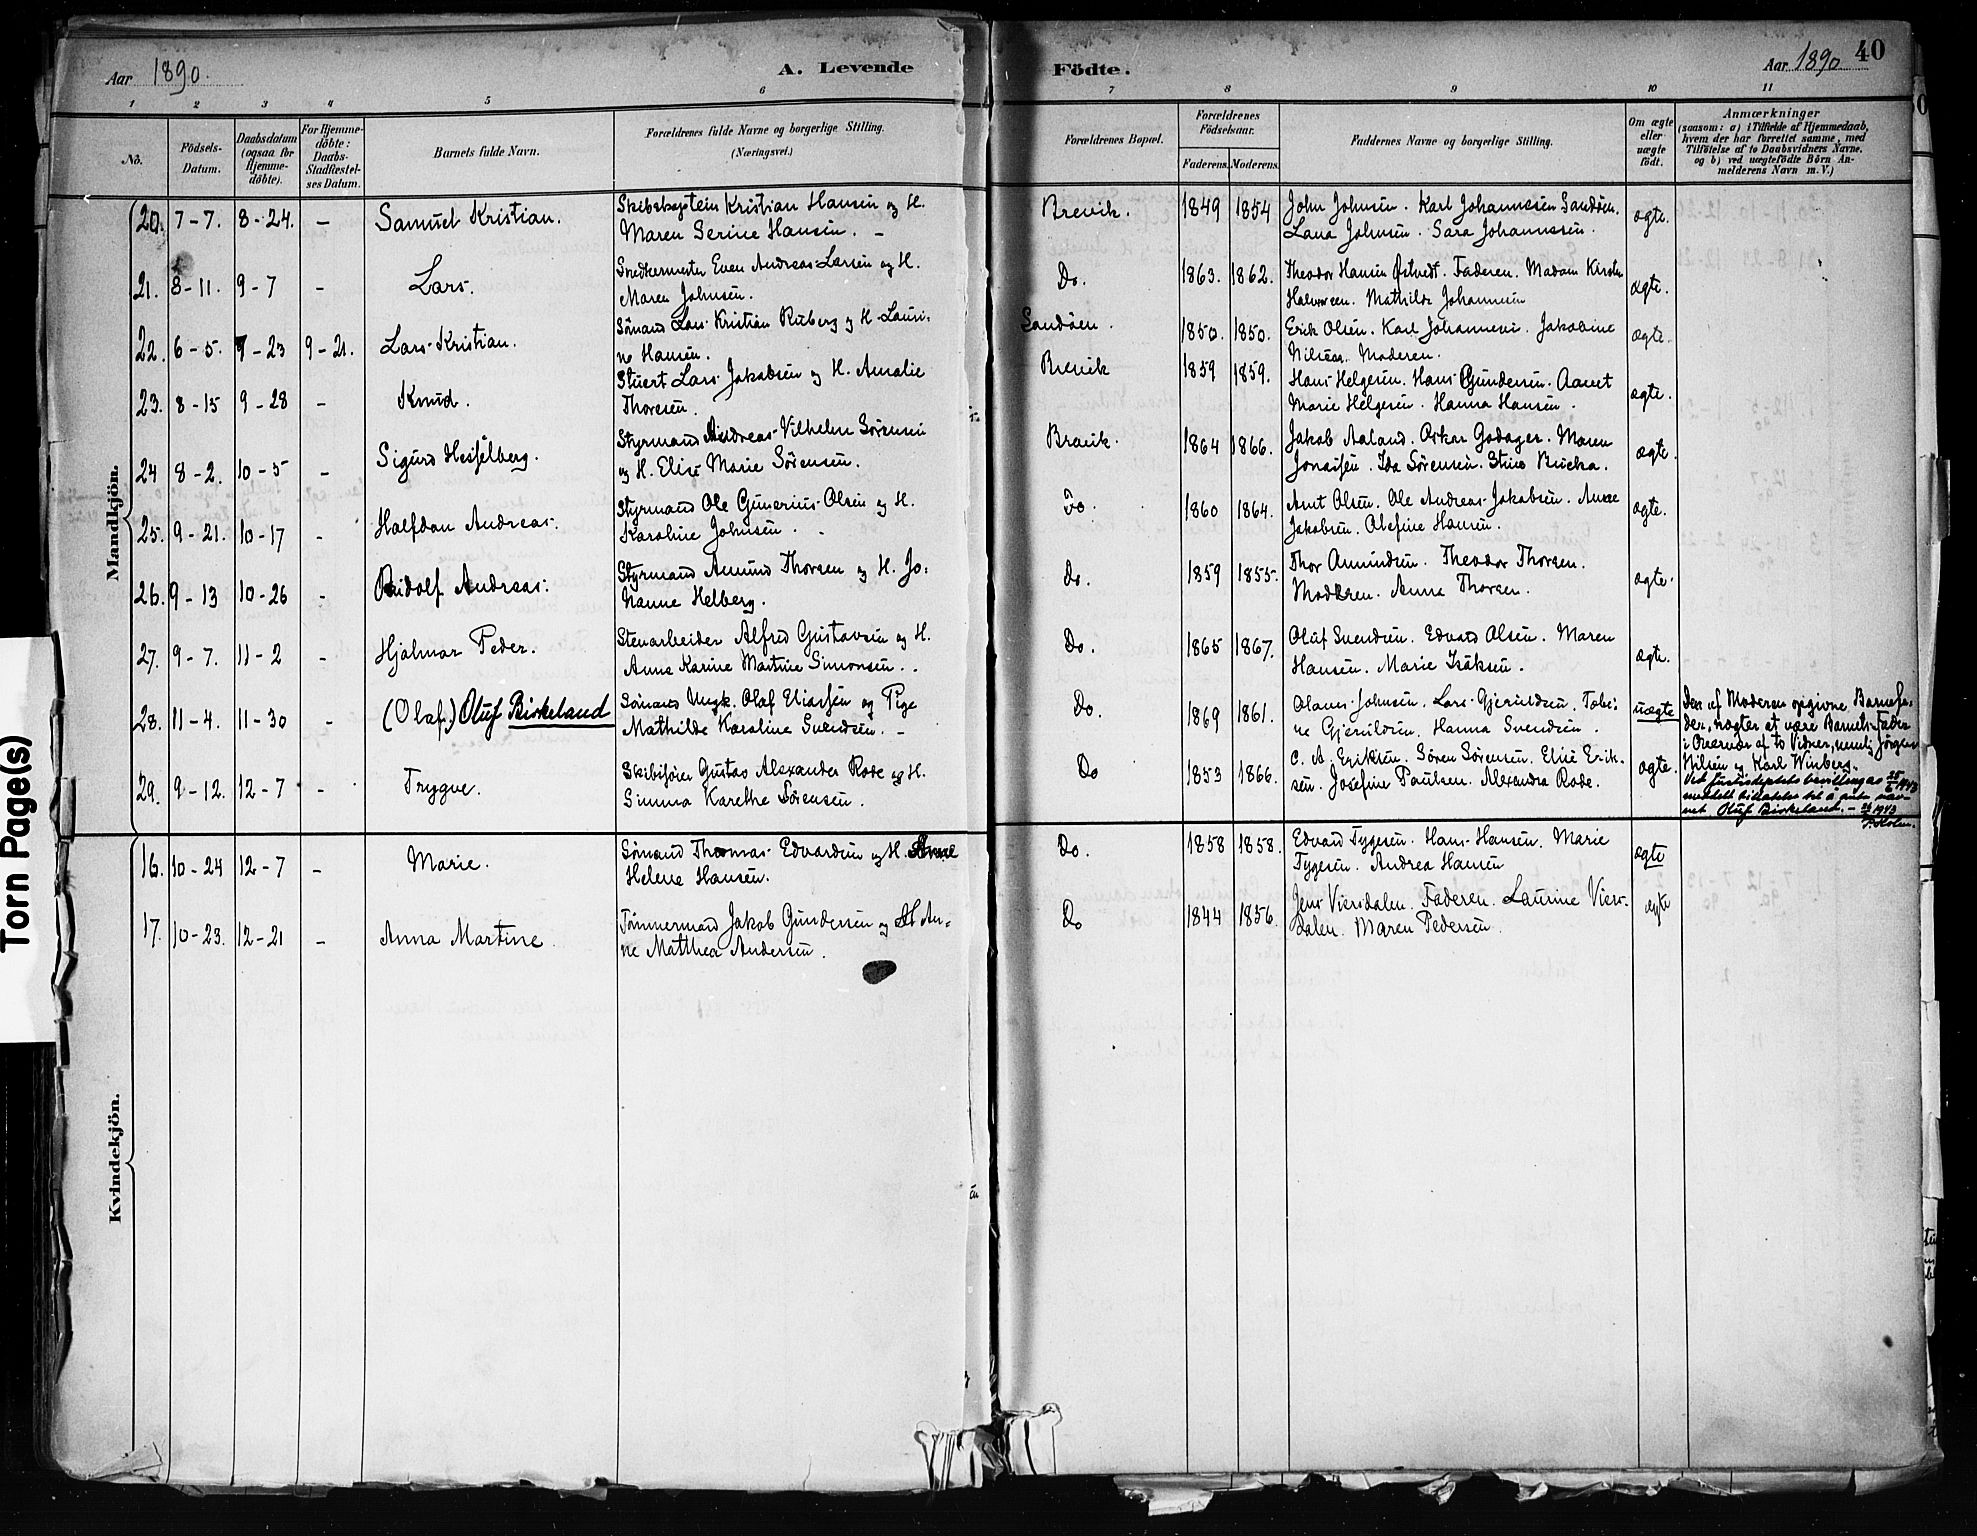 Aar 1890.
A. Levende
Födte.
Aar 1890
40
1 2 3 4 5 6 7 8 9 10 11
No.
Födsels-Datum.
Daabsdatum (ogsaa for Hjemme-döbte).
For Hjemme-döbte: Daabs-Stadfæstel-ses Datum.
Barnets fulde Navn.
Forældrenes fulde Navne og borgerlige Stilling. (Næringsvei.)
Forældrenes Bopæl.
Forældrenes Födselsaar.
Faderens. Moderens.
Faddernes Navne og borgerlige Stilling.
Om ægte eller uægte födt.
Anmærkninger
(saasom: a) i Tilfælde af Hjemmedaab, hvem der har forrettet samme, med Tilföielse af to Daabsvidners Navne, og b) ved uægtefödte Börn An-melderens Navn m. V.)
Mandkjön.
20. 7-7. 8-24. - Samuel Kristian. Skibskaptein Kristian Hansen og H. Brevik. 1849 1854 John Johnsen. Karl Johannesen Sandøen. ægte.
Maren Serine Hansen. - Lana Johnsen. Sara Johannesen.
21. 8-11. 9-7 - Lars. Snedkermester Even Andreas Larsen og H. Do. 1863. 1862. Theodor Hansen Østvedt. Faderen. Madam Kirsten ægte.
Maren Johnsen. Halvorsen. Mathilde Johannesen
22. 6-5. 7-23 9-21. Lars Kristian. Sömand Lars Kristian Ruberg og H. Lauri- Sandöen. 1850. 1850. Erik Olsen. Karl Johannesen. Jakobine ægte.
ne Hansen. Nilsen. Moderen.
23. 8-15 9-28 - Knud. Stuert Lars Jakobsen og H. Amalie Brevik 1859 1859. Hans Helgesen. Hans Gundersen. Aanet ægte.
Thoresen. Marie Helgesen. Hanna Hansen.
24 8-2. 10-5 - Sigurd Hesselberg. Styrmand Andreas Vilhelm Sörensen Brevik. 1864 1866. Jakob Aaland. Oskar Godager. Maren ægte.
og H. Elise Marie Sörensen. Jonassen. Ida Sörensen. Stine
25. 9-21. 10-17 - Halfdan Andreas. Styrmand Ole Gunerius Olsen og H. Do. 1860 1864. Arnt Olsen. Ole Andreas Jakobsen. Anne ægte.
Karoline Johnsen. Jakobsen. Olefine Hansen.
26. 9-13 10-26 - Ridolf Andreas. Styrmand Amund Thorsen og H. Jo- Do. 1859 1855. Thor Amundsen. Theodor Thorsen. ægte.
hanne Helberg. Moderen. Anna Thorsen.
27. 9-7. 11-2 - Hjalmar Peder. Stenarbeider Alfred Gustavsen og H. Do. 1865 1867. Oluf Svendsen. Edvard Olsen. Maren ægte.
Anna Karine Martine Simonsen. Hansen. Marie Isaksen.
28. 11-4. 11-30 - (Olaf.) Oluf Birkeland Sömand Ungk. Olaf Eliassen og Pige Do. 1869 1861. Olaus Johnsen. Lars Gjeruldsen. Tobi- uægte
Mathilde Karoline Svendsen. - ne Gjeruldsen. Hanna Svendsen.
Den af Moderen opgivne Barnefa-
der, nægter at være Barnets Fader
i Overvær af to Vidner, nemlig Jörgen
Nilsen og Karl Winberg.
Ved justisdeptets bevilling av 25/6 1943
meddelt tillatelse til å anta nav-
net Oluf Birkeland. - 1943
P. Holm.
29. 9-12. 12-7 - Trygve. Skibsförer Gustav Alexander Rode og H. Do 1853 1866. C. A. Eriksen. Sören Sörensen. Elise Erik- ægte.
Simma Karethe Sörensen. sen. Josefine Paulsen. Alexandra Rode.
Kvindekjön.
16. 10-24 12-7 - Marie. Sömand Thomas Edvardsen og H. Anne Do. 1858 1858. Edvard Tygesen. Hans Hansen. Marie ægte
Helene Hansen. Tygesen. Andrea Hansen
17. 10-23. 12-21 - Anna Martine. Tömmermand Jakob Gundersen og H. An- Do 1844 1856. Jens Viersdalen. Faderen. Laurine Viers- ægte
ne Matthea Andersen. dalen. Maren Pedersen.
Torn Page(s)